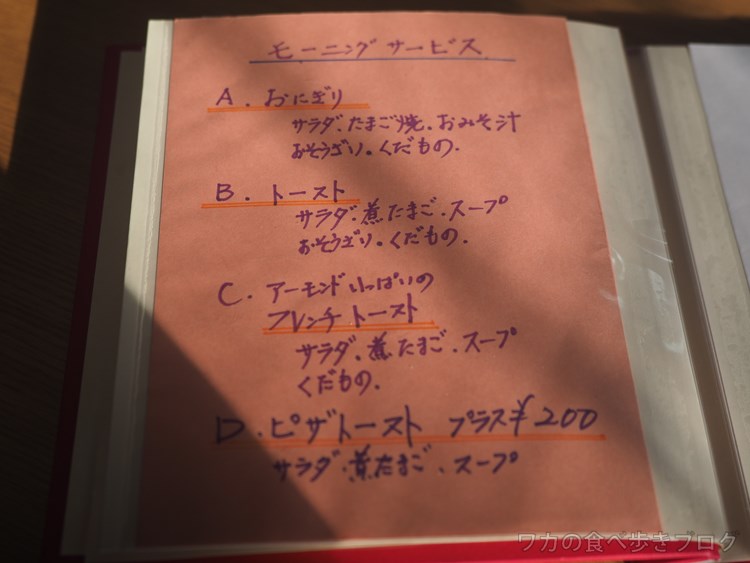 モーニングサービス
A. おにぎり
サラダ.たまご焼.おみそ汁
おそうざい。くだもの.
B. トースト
サラダ.煮たまご.スープ
おそうざい。くだもの.
C. アーモンドいっぱいの
フレンチトースト
サラダ.煮たまご.スープ
くだもの.
D.ピザトースト プラス¥200
サラダ.煮たまご.スープ
ワカの食べ歩きブログ